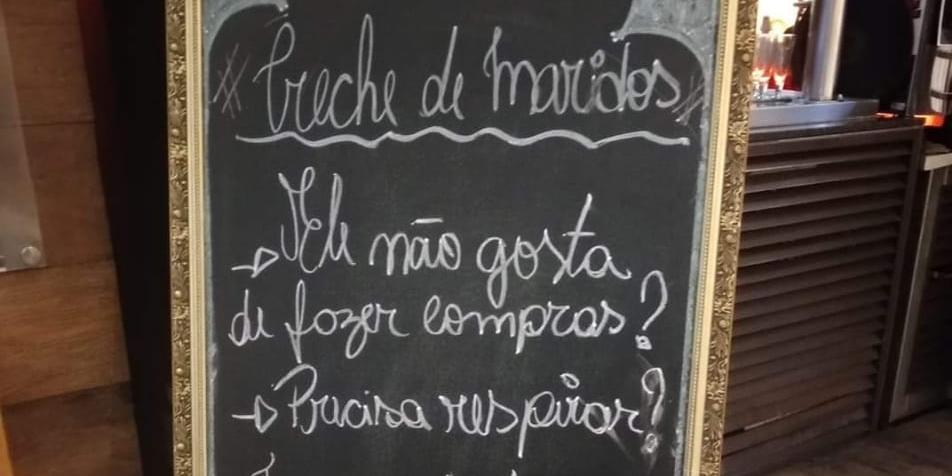 # Creche de maridos #
→ Ele não gosta
de fazer compras?
→ Precisa respirar?